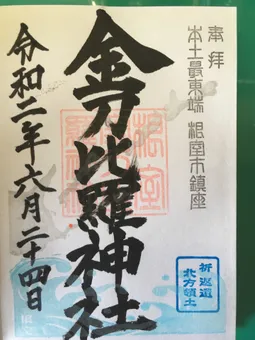 奉拝
本土最東端 根室市鎮座
金刀比羅神社
令和二年六月二十四日
祈返還
北方領土